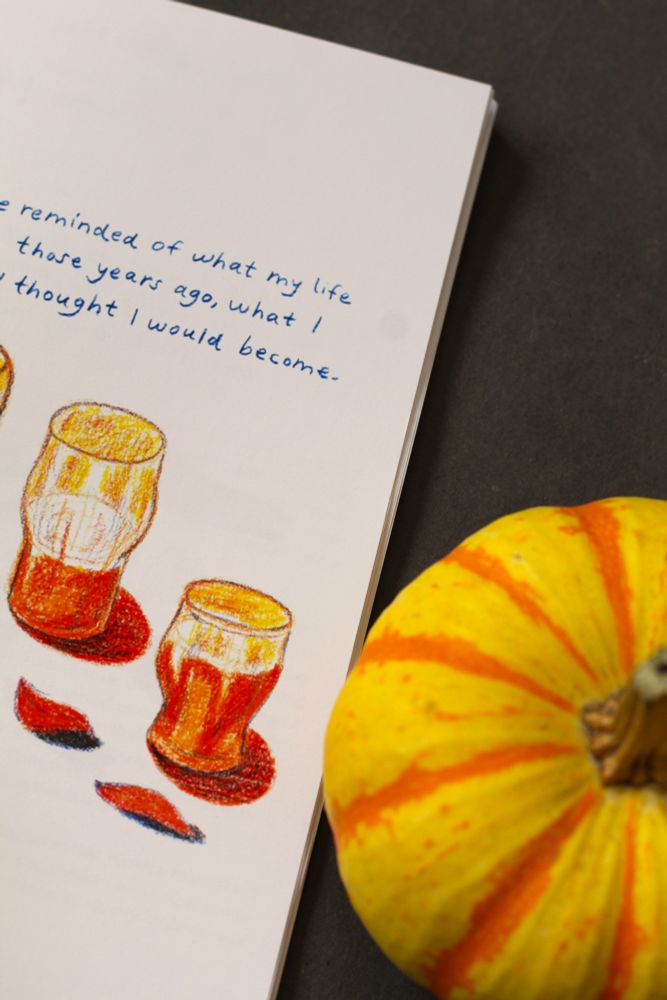 reminded of what my life
those years ago, what I
thought I would become.